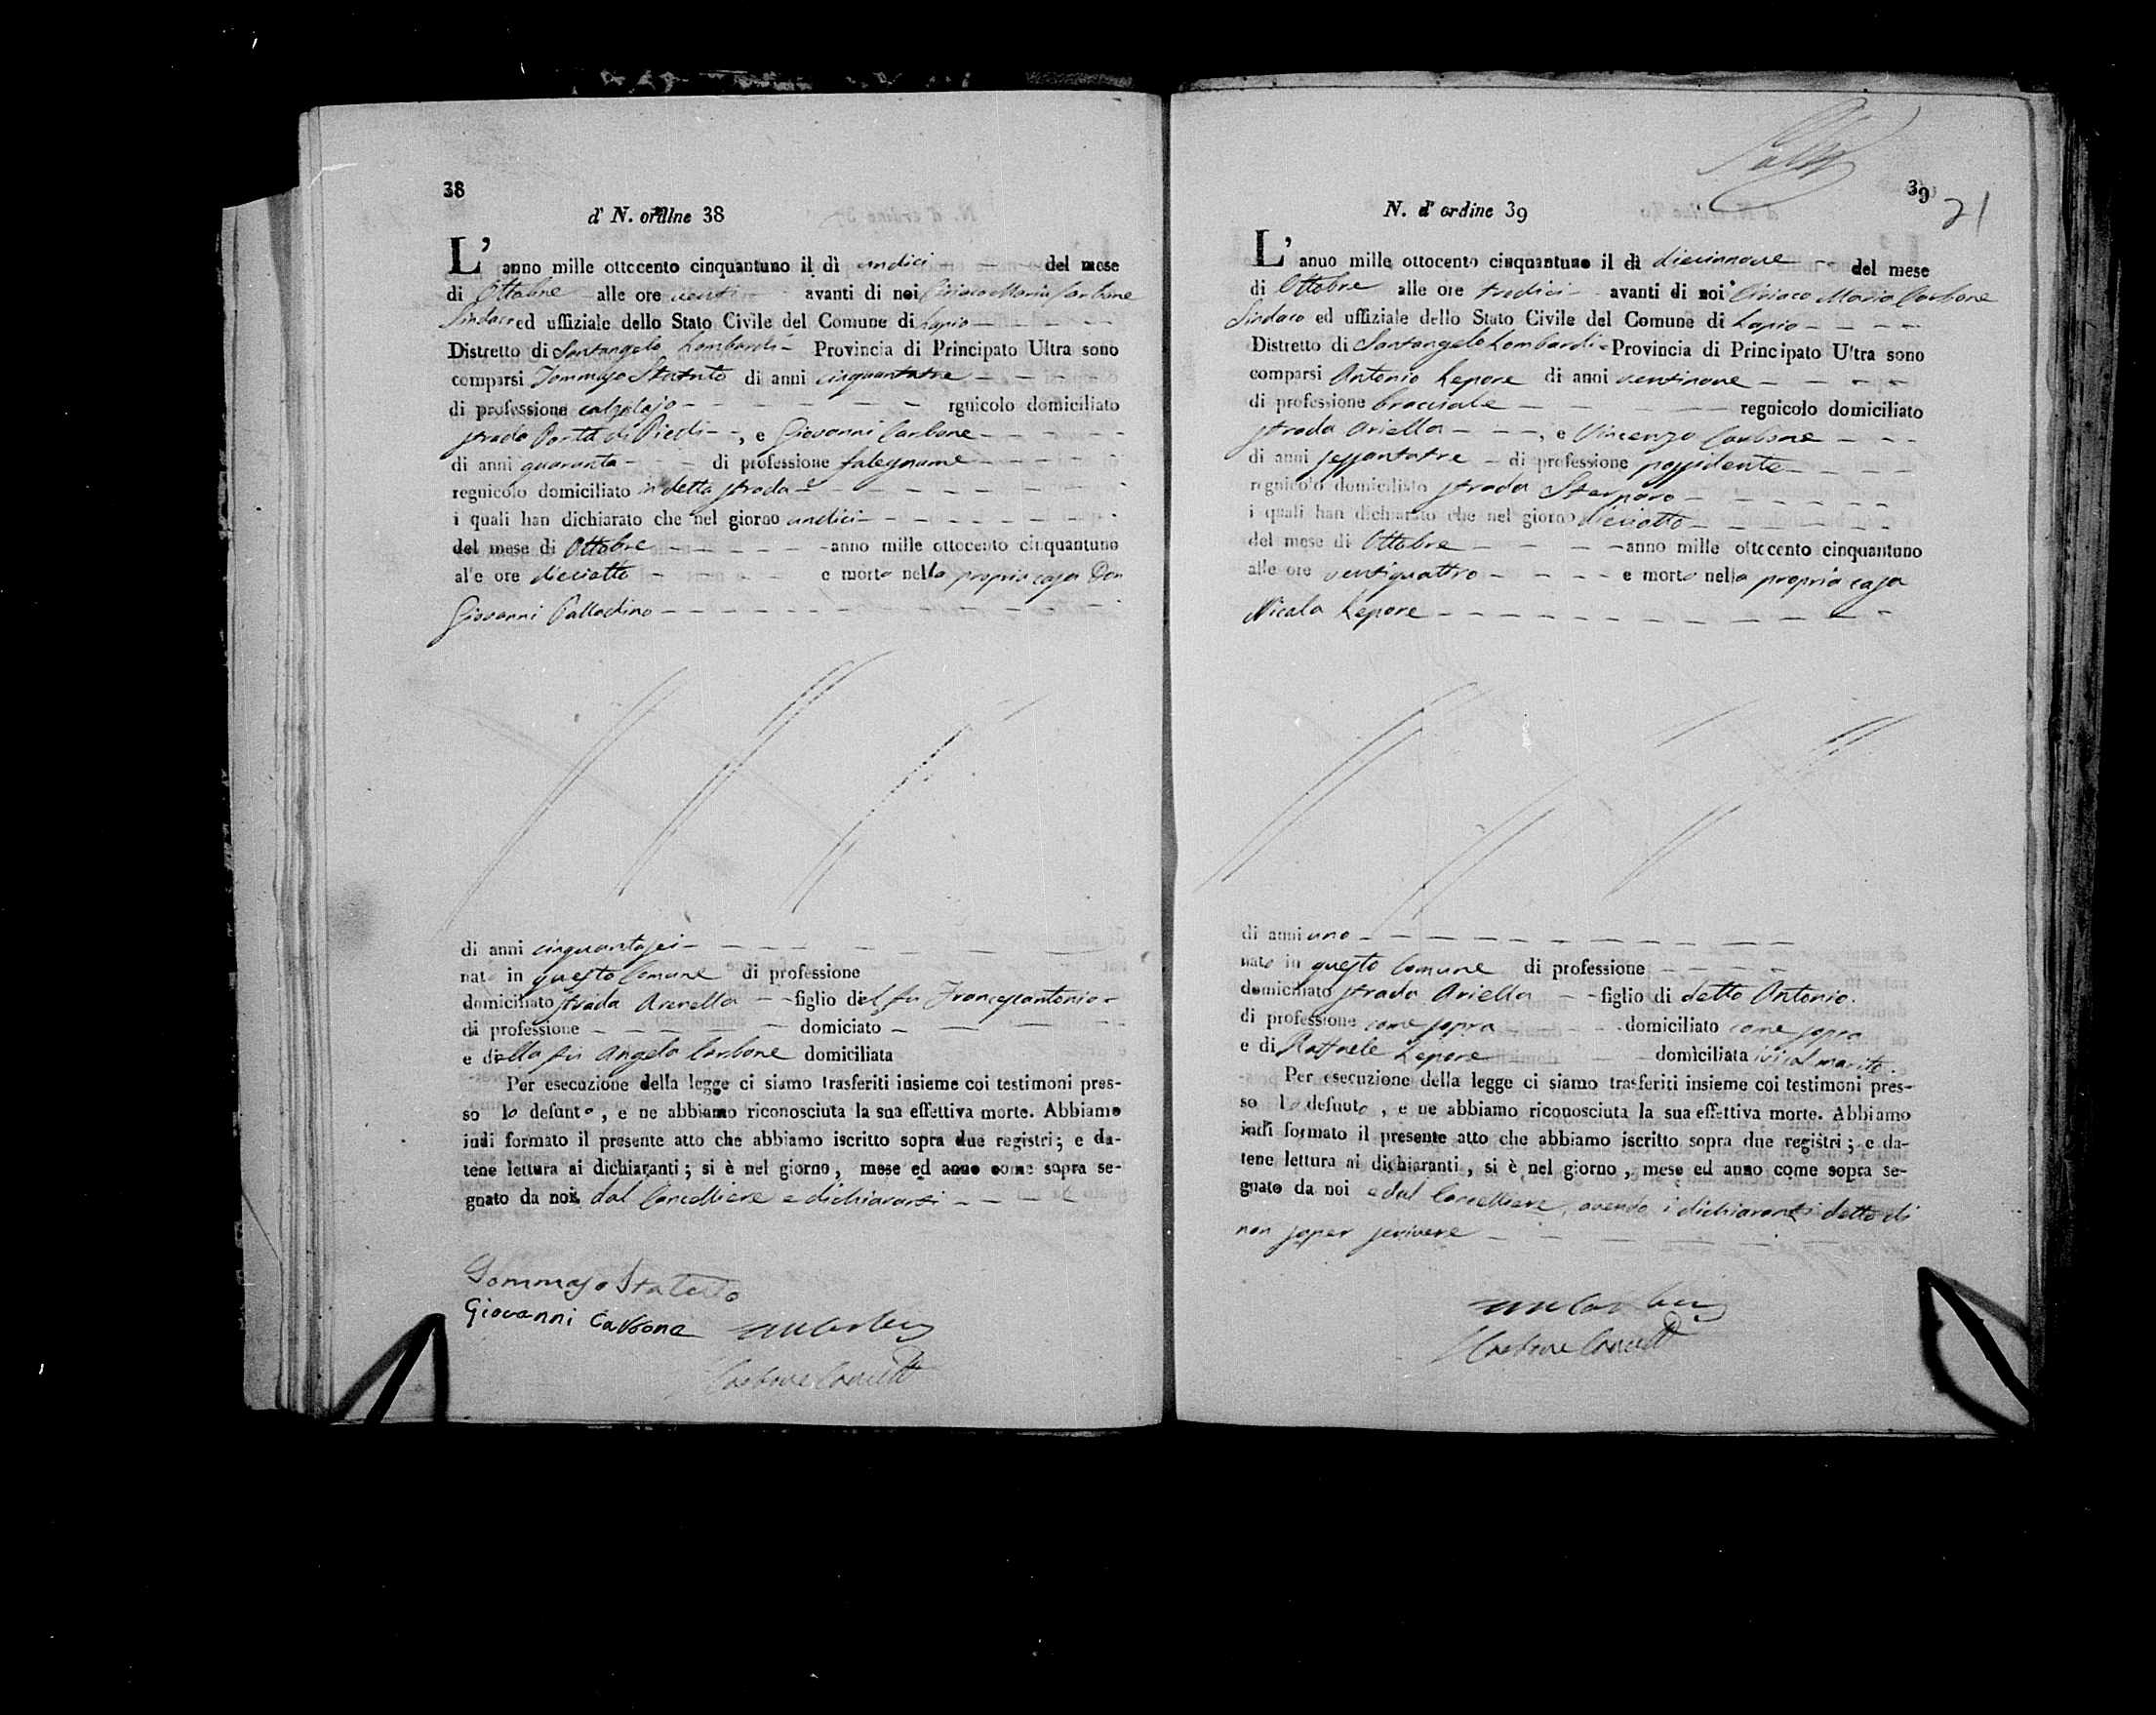 38
d' N. ordine 38
L' anno mille ottocento cinquantuno il dì undici del mese
di Ottobre alle ore venti avanti di noi Ciriaco Maria Carbone
Sindaco ed uffiziale dello Stato Civile del Comune di Lapio
Distretto di Santangelo Lombardi Provincia di Principato Ultra sono
comparsi Tommaso Statuto di anni cinquantatre
di professione calzolajo rgnicolo domiciliato
strada Porta di Piedi, e Giovanni Carbone
di anni quaranta di professione falegname
regnicolo domiciliato in detta strada
i quali han dichiarato che nel giorno undici
del mese di Ottobre anno mille ottocento cinquantuno
al'e ore dieciotto e morto nella propria casa Don
Giovanni Palladino
di anni cinquantasei
nato in questo Comune di professione
domiciliato strada Aranella figlio del fu Francescantonio
di professione domiciato
e della fu Angela Carbone domiciliata
Per esecuzione della legge ci siamo trasferiti insieme coi testimoni pres-
so lo defunto, e ne abbiamo riconosciuta la sua effettiva morte. Abbiamo
indi formato il presente atto che abbiamo iscritto sopra due registri; e da-
tene lettura ai dichiaranti; si è nel giorno, mese ed anno come sopra se-
gnato da noi dal Cancelliere e dichiaranti
Tommaso Statuto
Giovanni Carbone
Carbone Cancell
39
21
N. d' ordine 39
L' anno mille ottocento cinquantuno il dì diecinnove del mese
di Ottobre alle ore tredici avanti di noi Ciriaco Maria Carbone
Sindaco ed uffiziale dello Stato Civile del Comune di Lapio
Distretto di Santangelo Lombardi Provincia di Principato U'tra sono
comparsi Antonio Lepore di anni ventinove
di professione bracciale regnicolo domiciliato
strada Ariella, e Vincenzo Carbone
di anni sessantatre di professione possidente
regnicolo domiciliato strada Sterparo
i quali han dichiarato che nel giorno dieciotto
del mese di Ottobre anno mille ottocento cinquantuno
alle ore ventiquattro e morto nella propria casa
Nicola Lepore
di anni uno
nato in questo Comune di professione
domiciliato strada Ariella figlio di detto Antonio.
di professione come sopra domiciliato come sopra
e di Raffaele Lepore domiciliata ivi col marito.
Per esecuzione della legge ci siamo trasferiti insieme coi testimoni pres-
so lo defunto, e ne abbiamo riconosciuta la sua effettiva morte. Abbiamo
indi formato il presente atto che abbiamo iscritto sopra due registri; e da-
tene lettura ai dichiaranti, si è nel giorno, mese ed anno come sopra se-
gnato da noi e dal Cancelliere, avendo i dichiaranti detto di
non saper scrivere
Carbone Cancell